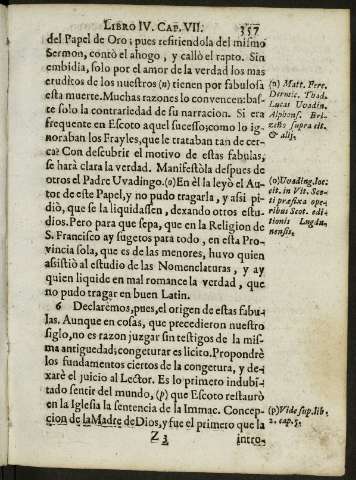 LIBRO IV. CAP. VII. 357
del Papel de Oro; pues refiriendola del mismo
Sermon, contò el ahogo, y callò el rapto. Sin
embidia, solo por el amor de la verdad los mas
eruditos de los nuestros (n) tienen por fabulosa
esta muerte. Muchas razones lo convencen: bas-
te solo la contrariedad de su narracion. Si era
frequente en Escoto aquel sucesso; como lo ig-
noraban los Frayles, que le trataban tan de cer-
ca? Con descubrir el motivo de estas fabulas,
se harà clara la verdad. Manifestòla despues de
otros el Padre Uvadingo. (o) En èl la leyò el Au-
tor de este Papel, y no pudo tragarla, y assi pi-
diò, que se la liquidassen, dexando otros estu-
dios. Pero para que sepa, que en la Religion de
S. Francisco ay sugetos para todo, en esta Pro-
vincia sola, que es de las menores, huvo quien
assistiò al estudio de las Nomenclaturas, y ay
quien liquide en mal romance la verdad, que
no pudo tragar en buen Latin.
6 Declaremos, pues, el origen de estas fabu-
las. Aunque en cosas, que precedieron nuestro
siglo, no es razon juzgar sin testigos de la mis-
ma antiguedad; congeturar es licito. Propondrè
los fundamentos ciertos de la congetura, y de-
xarè el juicio al Lector. Es lo primero indubi-
tado sentir del mundo, (p) que Escoto restaurò
en la Iglesia la sentencia de la Immac. Concep-
cion de la Madre de Dios, y fue el primero que la
Z 3 intro-
(n) Matt. Ferc.
Dermic. Thad.
Lucas Uvadin.
Alphons. Bri-
zeño supra cit.
& alij.
(o) Uvading. loc.
cit. in Vit. Sco-
ti præfixa ope-
ribus Scot. edi-
tionis Lugdu-
nensis.
(p) Vide sup. lib.
2. cap. 5.